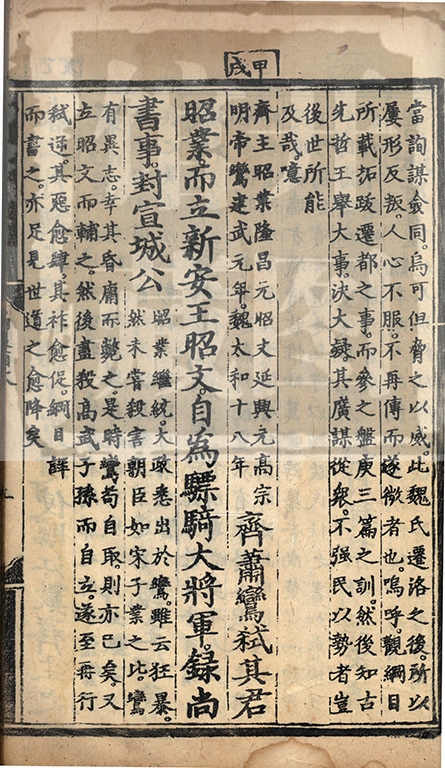 甲戌
當詢謀僉同。烏可但脅之以威。此魏氏遷洛之後。所以
屢形反叛。人心不服。不再傳而遂微者也。嗚呼。觀綱目
所載拓跋遷都之事。而參之盤庚三篇之訓。然後知古
先哲王舉大事。決大疑。其廣謀從衆。不强民以勢者。豈
後世所能
及哉。噫
齊主昭業隆昌元昭文延興元高宗
明帝鸞建武元年。魏太和十八年
齊蕭鸞弒其君
昭業。而立新安王昭文。自為驃騎大將軍。錄尚
書事。封宣城公
昭業繼統。大政悉出於鸞。雖云狂暴。
然未嘗殺害朝臣如宋子業之比。鸞
有異志。幸其昏庸而斃之。是時鸞苟自取。則亦已矣。又
立昭文而輔之。然後盡殺高武子孫而自立。遂至再行
弒逆。其惡愈肆。其祚愈促。綱目詳
而書之。亦足見世道之愈降矣